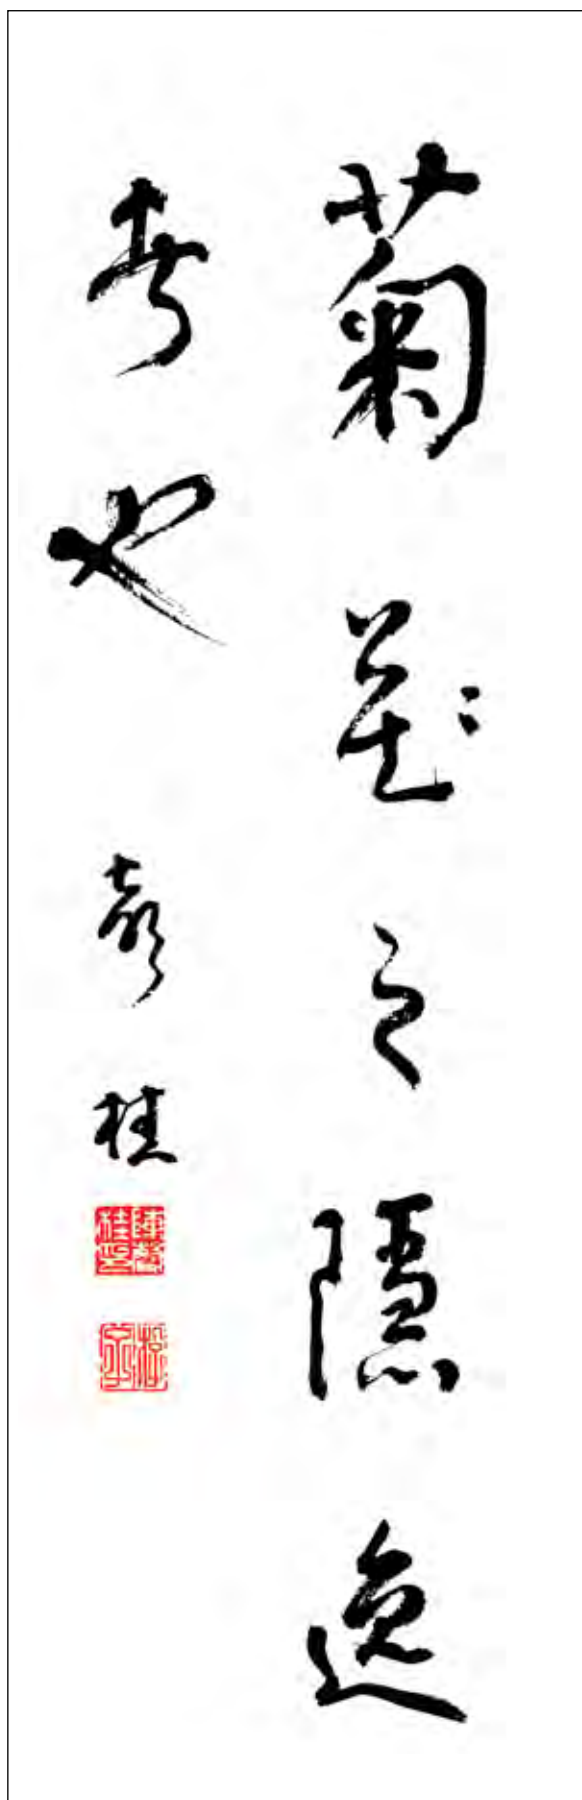 菊花之隱逸
者也
桂